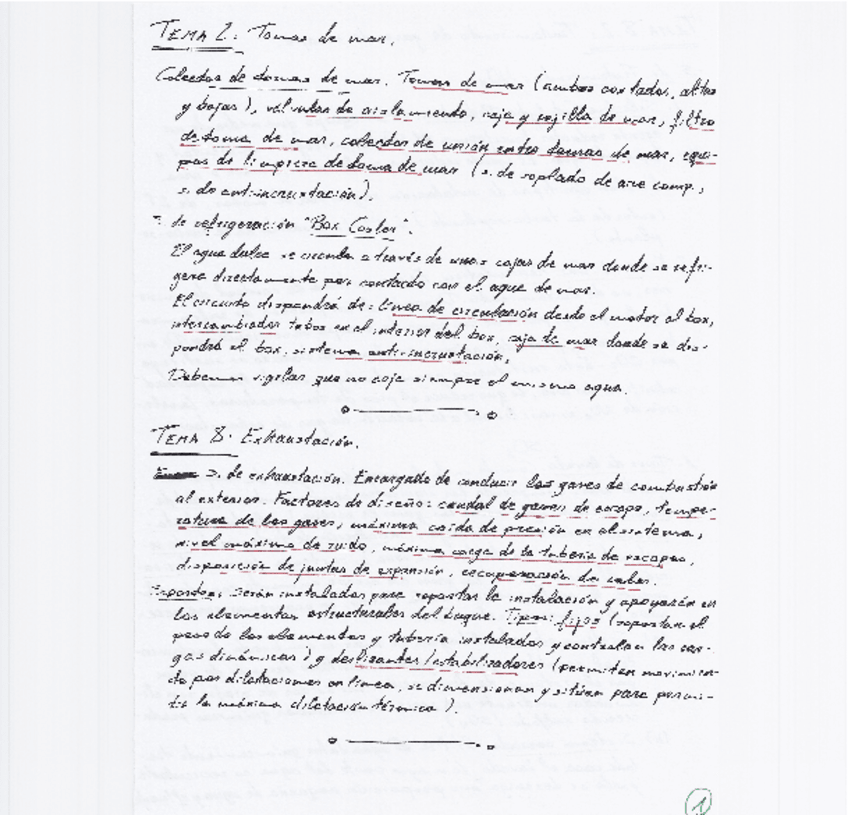 TEMA 2: Tomas de mar.
Colector de tomas de mar. Tomas de mar (ambos costados, altas
y bajas), válvulas de aislamiento, caja y rejilla de mar, filtro
de toma de mar, colector de unión entre tomas de mar, equi-
pos de limpieza de toma de mar (s. de soplado de aire comp.,
s. de antiincrustación).
S. de refrigeración "Box Cooler".
El agua dulce se circula a través de unas cajas de mar donde se refri-
gera directamente por contacto con el agua de mar.
El circuito dispondrá de: línea de circulación desde el motor al box,
intercambiador tubos en el interior del box, caja de mar donde se dis-
pondrá el box, sistema antiincrustación.
Debemos vigilar que no coja siempre el mismo agua.
TEMA 8. Exhaustación.
S. de exhaustación. Encargado de conducir los gases de combustión
al exterior. Factores de diseño: caudal de gases de escape, tempe-
ratura de los gases, máxima caída de presión en el sistema,
nivel máximo de ruido, máxima carga de la tubería de escape,
disposición de juntas de expansión, recuperación de calor.
Soportes: Serán instalados para soportar la instalación y apoyarán en
los elementos estructurales del buque. Tipos: fijos (soportan el
peso de los elementos y tubería instalados y controlan las car-
gas dinámicas) y deslizantes/estabilizadores (permiten movimien-
to por dilataciones en línea, se dimensionan y sitúan para permi-
tir la máxima dilatación térmica).
1